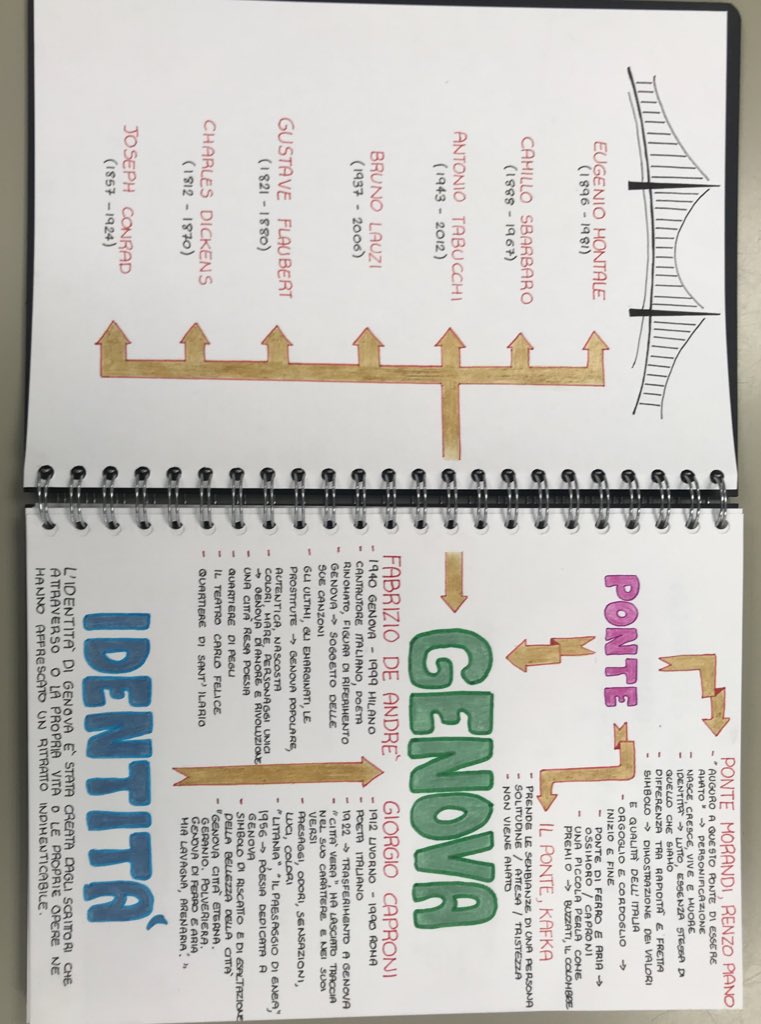 EUGENIO MONTALE
(1896 - 1981)
CAMILLO SBARBARO
(1888 - 1967)
ANTONIO TABUCCHI
(1943 - 2012)
BRUNO LAUZI
(1937 - 2006)
GUSTAVE FLAUBERT
(1821 - 1880)
CHARLES DICKENS
(1812 - 1870)
JOSEPH CONRAD
(1857 - 1924)
PONTE MORANDI, RENZO PIANO
- "AUGURO A QUESTO PONTE DI ESSERE
AMATO" → PERSONIFICAZIONE
- NASCE, CRESCE, VIVE E MUORE
- IDENTITÀ → LUTTO ESSENZA STESSA DI
QUELLO CHE SIAMO
- DIFFERENZA TRA RAPIDITÀ E FRETTA
- SIMBOLO → DIMOSTRAZIONE DEI VALORI
E QUALITÀ DELL'ITALIA
- ORGOGLIO E CORDOGLIO →
INIZIO E FINE
- PONTE DI FERRO E ARIA →
OSSIMORO / CAPRONI
- UNA PICCOLA PERLA COME
PREMIO → BUZZATI, IL COLOMBRE
PONTE
IL PONTE, KAFKA
- PRENDE LE SEMBIANZE DI UNA PERSONA
- SOLITUDINE - ATTESA / TRISTEZZA
- NON VIENE AMATO
GENOVA
FABRIZIO DE ANDRE'
- 1940 GENOVA - 1999 MILANO
- CANTAUTORE ITALIANO, POETA
RINOMATO, FIGURA DI RIFERIMENTO
- GENOVA → SOGGETTO DELLE
SUE CANZONI
- GLI ULTIMI, GLI EMARGINATI, LE
PROSTITUTE → GENOVA POPOLARE,
AUTENTICA, NASCOSTA
- COLORI, MARE, PERSONAGGI UNICI
→ GENOVA DI AMORE E RIVOLUZIONE
- UNA CITTÀ RESA POESIA
- QUARTIERE DI PEGLI
- IL TEATRO CARLO FELICE
- QUARTIERE DI SANT'ILARIO
GIORGIO CAPRONI
- 1912 LIVORNO - 1990 ROMA
- POETA ITALIANO
- 1922 → TRASFERIMENTO A GENOVA
- "CITTÀ VERA", HA LASCIATO TRACCIA
NEL SUO CARATTERE E NEI SUOI
VERSI
- PAESAGGI, ODORI, SENSAZIONI,
LUCI, COLORI
- "LITANIA" "IL PASSAGGIO DI ENEA",
1956 → POESIA DEDICATA A
GENOVA
- SIMBOLO DI RISCATTO E DI ESALTAZIONE
DELLA BELLEZZA DELLA CITTÀ
- "GENOVA CITTÀ ETERNA.
GERANIO. POLVERIERA.
GENOVA DI FERRO E ARIA
MIA LAVAGNA, ARENARIA."
IDENTITÀ
L'IDENTITÀ DI GENOVA E' STATA CREATA DAGLI SCRITTORI CHE
ATTRAVERSO O LA PROPRIA VITA O LE PROPRIE OPERE NE
HANNO AFFRESCATO UN RITRATTO INDIMENTICABILE.